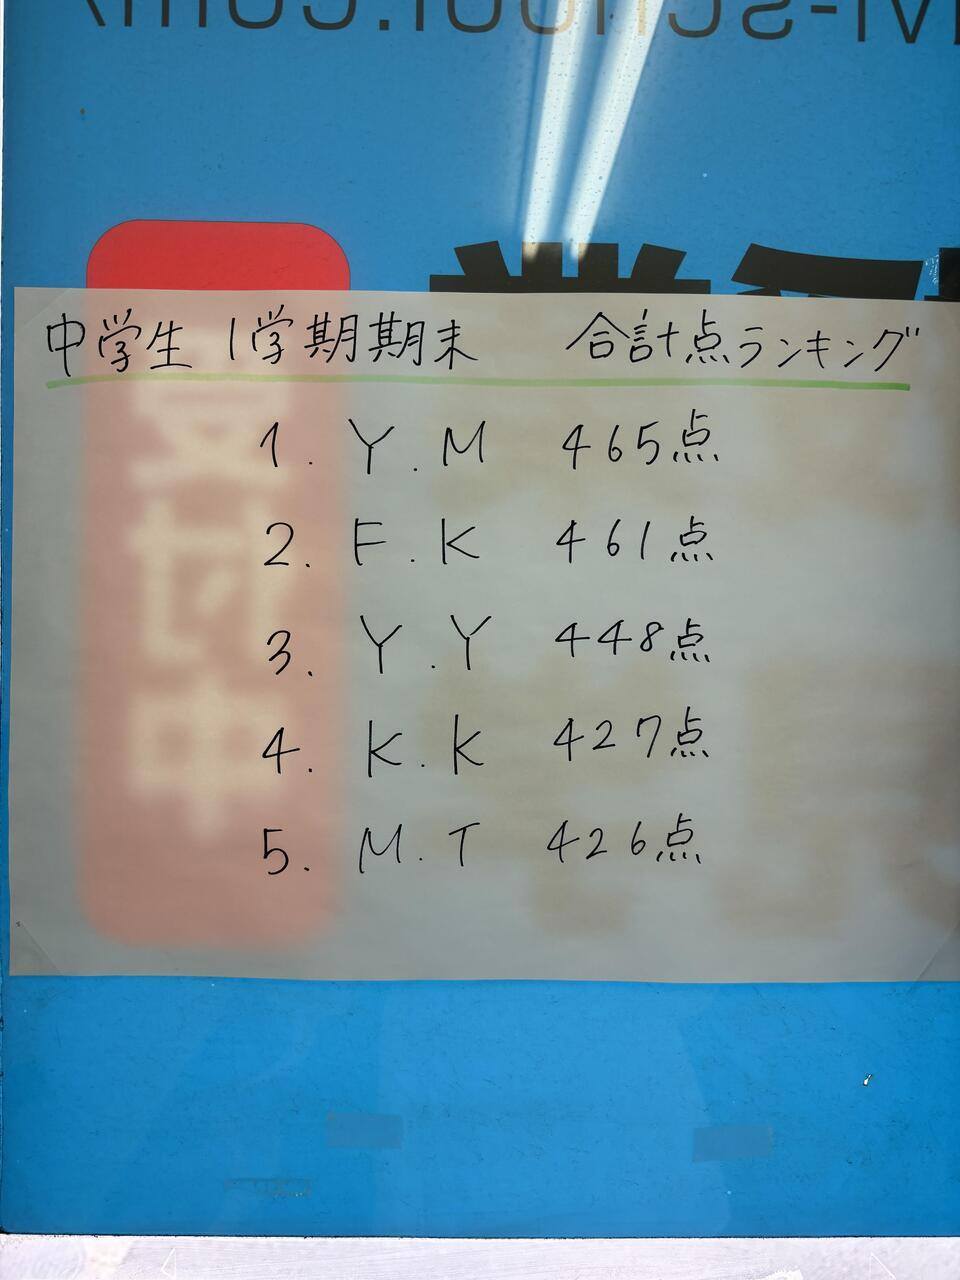 中学生 1学期期末 合計点ランキング
1. Y.M 465点
2. F.K 461点
3. Y.Y 448点
4. K.K 427点
5. M.T 426点
受付中